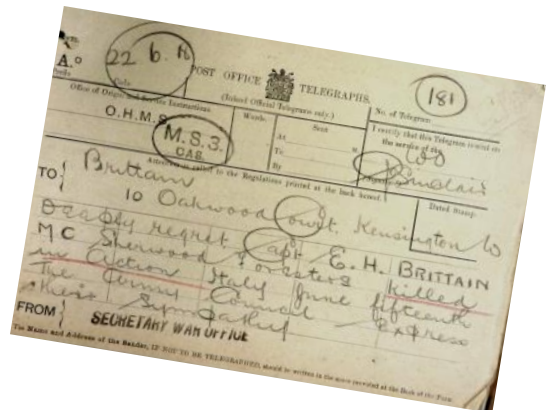 22 6. 18
A.º
Prefix Code
POST OFFICE TELEGRAPHS.
(Inland Official Telegrams only.)
181
No. of Telegram
Office of Origin and Service Instructions.
O.H.M.S.
M.S.3.
CAS.
Words.
Sent
At
To
By
I certify that this Telegram is sent on the service of the
WO
Sinclair
Attention is called to the Regulations printed at the back hereof.
Dated Stamp.
TO Brittain
10 Oakwood Court. Kensington W
Deeply regret Capt E. H. BRITTAIN
MC Sherwood Foresters Killed
in action Italy June fifteenth
The Army Council express
their sympathy
FROM SECRETARY WAR OFFICE
The Name and Address of the Sender, IF NOT TO BE TELEGRAPHED, should be written in the space provided at the Back of the Form.